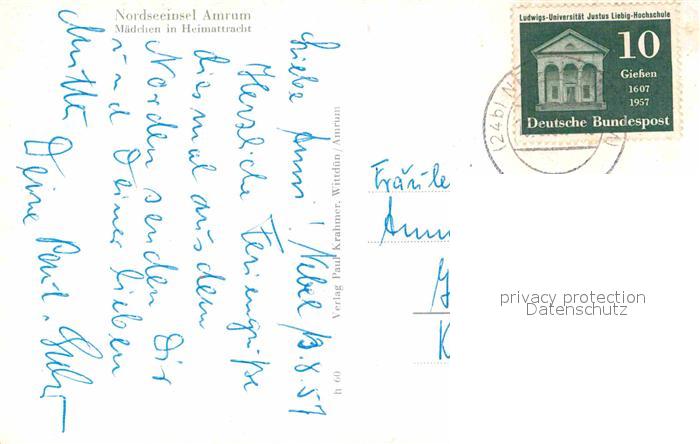 Nordseeinsel Amrum
Mädchen in Heimattracht
Liebe Anni! Nebel 13.8.57
Herzliche Feriengrüße
diesmal aus dem
Norden senden Dir
und Deiner lieben
Mutter Deine
Verlag Paul Krahmer, Wittdün/Amrum
h 60
Ludwigs-Universität Justus Liebig-Hochschule
10
Gießen
1607
1957
Deutsche Bundespost
(24b) N
Fräule
privacy protection
Datenschutz